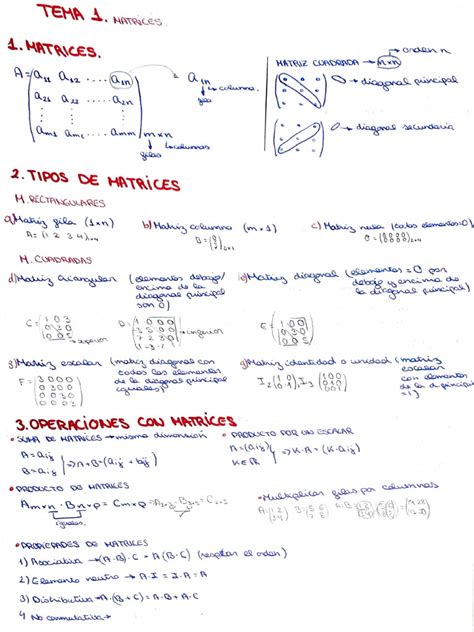 TEMA 1. MATRICES.
1. MATRICES.
A = (a11 a12 ..... a1n) a1n → columna
fila
a21 a22 ... a2n
am1 am2 ... amn) m×n → columnas
filas
MATRIZ CUADRADA → m×n → orden n
→ diagonal principal
→ diagonal secundaria
2. TIPOS DE MATRICES
M. RECTANGULARES
a) Matriz fila (1×n)
A = (1 2 3 4)
b) Matriz columna (m×1)
c) Matriz nula (todos elementos=0)
M. CUADRADAS
d) Matriz triangular (elementos debajo/
encima de la
diagonal principal
son 0)
C = (1 0 3
0 3 0
0 0 5) → superior
D = → inferior
e) Matriz diagonal (elementos = 0 por
debajo y encima de
la diagonal principal)
g) Matriz escalar (matriz diagonal con
todos los elementos
de la diagonal principal
iguales)
F = (3 0 0 0
0 3 0 0
0 0 3 0
0 0 0 3)
g) Matriz identidad o unidad (matriz
escalar
con elementos
de la d. principal
= 1)
3. OPERACIONES CON MATRICES
• SUMA DE MATRICES → misma dimensión
A = (aij)
B = (bij) ⇒ A+B = (aij + bij)
• PRODUCTO POR UN ESCALAR
A = (aij)
K∈R ⇒ K·A = (K·aij)
• PRODUCTO DE MATRICES
Am×n · Bn×p = Cm×p
iguales
• Multiplicar filas por columnas
• PROPIEDADES DE MATRICES
1) Asociativa → (A·B)·C = A(B·C) (respetar el orden)
2) Elemento neutro → A·I = I·A = A
3) Distributiva → A·(B+C) = A·B + A·C
4) No conmutativa →